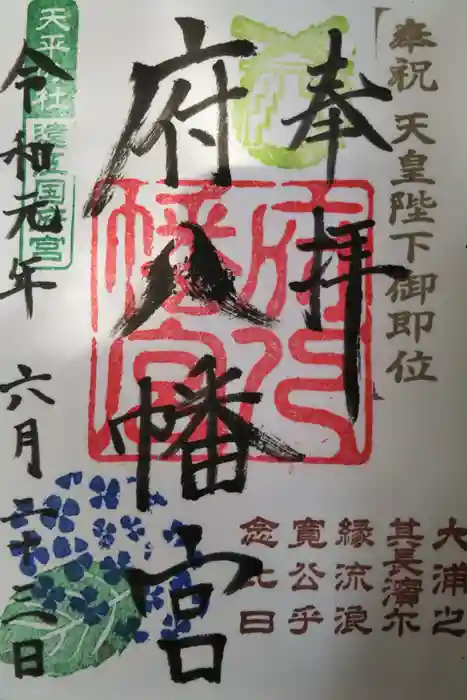 奉祝 天皇陛下御即位
奉拝
府八幡宮
府八
幡宮
令和元年 六月二十三日
大浦之
其長濱尓
縁流浪
寛公乎
念比日